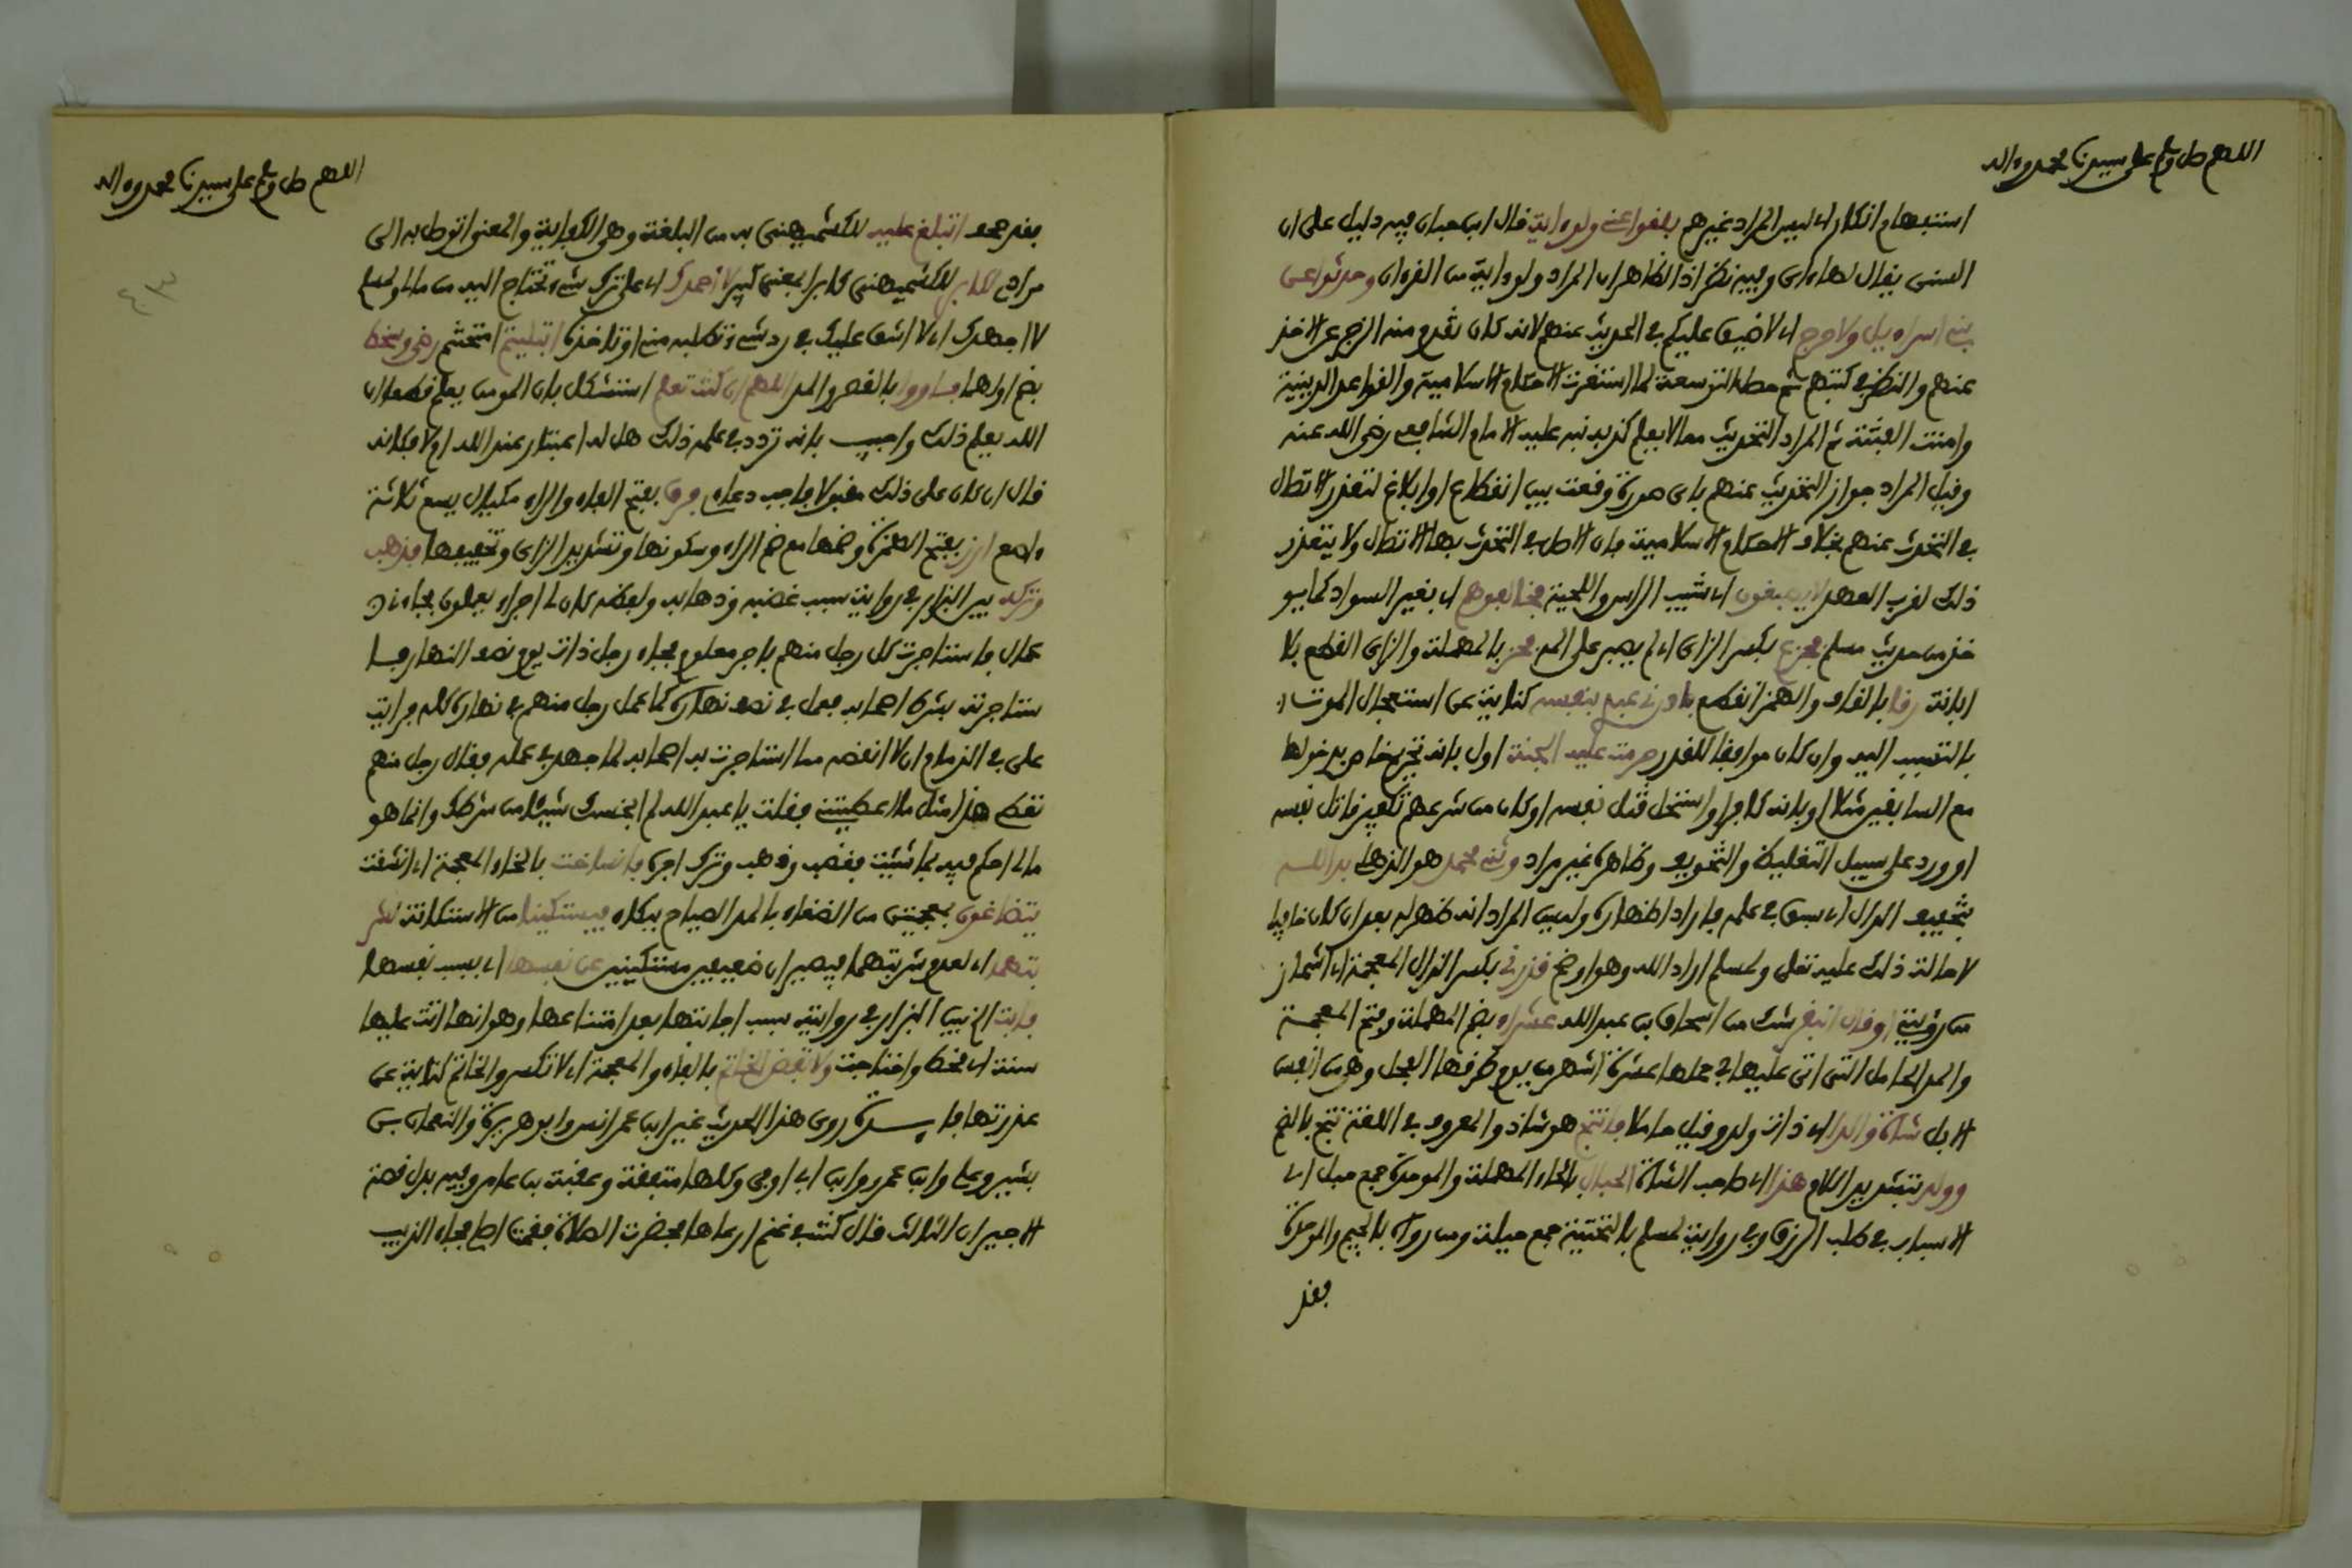 اللهم صل وسلم على سيدنا محمد وءاله
استفهام انكار اي ليس المراد غيرهم بلغوا عني ولو ءاية قال ابن حبان فيه دليل على ان
السنن يقال لها ءاي وفيه نظر اذ الظاهر ان المراد ولو ءاية من القرءان وحدثوا عن
بني اسراءيل ولا حرج اي لا ضيق عليكم في الحديث عنهم لانه كان تقدم منه الزجر عن الاخذ
عنهم والنظر في كتبهم ثم حصل التوسعة لما استقرت الاحكام الاسلامية والقواعد الدينية
وامنت الفتنة ثم المراد التحديث مما لا يعلم كذبه نبه عليه الامام الشافعي رضي الله عنه
وقيل المراد جواز التحديث عنهم باي صورة وقعت ببيان انقطاع او ابلاغ لتعذر الاتصال
في التحدث عنهم بخلاف الاحكام الاسلامية فان الاصل في التحدث بها الاتصال ولا يتعذر
ذلك لقرب العهد لا يصبغون اي شيب الراس واللحية فخالفوهم اي بغير السواد كما يو
خذ من حديث مسلم فجزع بكسر الزاي اي لم يصبر على الم فحز بالمهملة والزاي القطع بلا
ابانة رقا بالقاف والهمز انقطع بادرني عبدي بنفسه كناية عن استعجال الموت
بالتسبب اليه وان كان موافقا للقدر حرمت عليه الجنة اول بانه تحريم خاص بدخولها
مع السابقين مثلا او بانه كان كافرا او استحل قتل نفسه او كان من شرعهم تكفير قاتل نفسه
او ورد على سبيل التغليظ والتخويف وظاهره غير مراد وثني محمد هو الذهلي بدا لله
بتخفيف الدال اي سبق في علمه فاراد اظهاره وليس المراد انه ظهر له بعد ان كان خافيا
لاحالة ذلك عليه تعلى ولمسلم اراد الله وهو اوضح قذرني بكسر الذال المعجمة اي اشماز
من رؤيتي او قال البقر شك من اسحاق بن عبد الله عشراء بضم المهملة وفتح المعجمة
والمد الحامل التي اتى عليها في حملها عشرة اشهر من يوم طرقها الفحل وهي من انفس
الابل شاة والدا اي ذات ولد وقيل حاملا فانتج هو شاذ والمعروف في اللغة نتج بالضم
وولد بتشديد اللام هذا اي صاحب الشاة الحبال بالحاء المهملة والموحدة جمع حبل اي
الاسباب في طلب الرزق وفي رواية لمسلم بالتحتية جمع حيلة ومن رواه بالجيم والموحدة
فقد
اللهم صل وسلم على سيدنا محمد وءاله
فقد صحف اتبلغ عليه للكشميهني به من البلغة وهو الكفاية والمعنى اتوصل به الى
مرادي لكابر للكشميهني كابرا بمعنى كبير لا احمدك اي على ترك شيء تحتاج اليه من مالي ولمسلم
لا اجهدك اي لا اشق عليك في رد شيء تطلبه مني او تاخذه ابتليتم امتحنتم رضي وسخط
بضم اولهما فاووا بالقصر والمد اللهم ان كنت تعلم استشكل بان المومن يعلم قطعا ان
الله يعلم ذلك واجيب بانه تردد في عمله ذلك هل له اعتبار عند الله او لا فكانه
قال ان كان عملي ذلك مقبولا فاجب دعاءي فرق بفتح الفاء والراء مكيال يسع ثلاثة
ءاصع ارز بفتح الهمزة وضمها مع ضم الراء وسكونها وتشديد الزاي وتخفيفها فذهب
وتركه بين البزار في رواية سبب غضبه وذهابه ولفظه كان لي اجراء يعملون فجاءني
عمال فاستاجرت كل رجل منهم باجر معلوم فجاء رجل ذات يوم نصف النهار فا
ستاجرته بشرط اصحابه فعمل في نصف نهاره كما عمل رجل منهم في نهاره كله فرايت
علي في الذمام ان لا انقصه مما استاجرت به اصحابه لما جهد في عمله فقال رجل منهم
تعطي هذا مثل ما اعطيتني فقلت يا عبد الله لم ابخسك شيئا من شرطك وانما هو
مالي احكم فيه بما شئت فغضب وذهب وترك اجره فانساخت بالخاء المعجمة اي انشقت
يتضاغون بمعجمتين من الضغاء بالمد الصياح ببكاء فيستكينا من الاستكانة لشر
بتهما اي لعدم شربتهما فيصيران ضعيفين مستكينين عن نفسها اي بسبب نفسها
فابت الخ بين البزار في روايته سبب اجابتها بعد امتناعها وهو انها اتت عليها
سنة اي قحط واحتاجت ولا تفض الخاتم بالفاء والمعجمة اي لا تكسر والخاتم كناية عن
عذرتها فايدة روى هذا الحديث غير ابن عمر انس وابو هريرة والنعمان بن
بشير وعلي وابن عمرو وابن ابي اوفى وكلها متفقة وعقبة بن عامر وفيه بدل قصة
الاجير ان الثالث قال كنت في غنم ارعاها فحضرت الصلاة فقمت اصلي فجاء الذيب